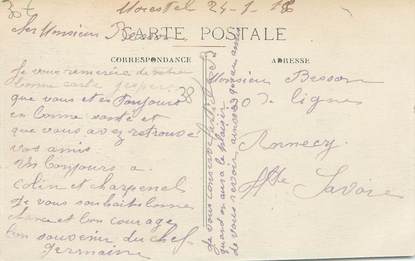 Morestel 24-1-18
Cher Monsieur Besson
CARTE POSTALE
CORRESPONDANCE
ADRESSE
Je vous remercie de votre
bonne carte
que vous et en toujours
en bonne santé et
que vous avez retrouvé
vos amis.
un bonjours a
Colin et charpenel
Je vous souhaits bonne
chance et bon courage
bon souvenir du chef
germaine
38
Je vous
quand on aura le plaisir
de vous revoir
Monsieur Besson
O de ligne
Annecy
Hte Savoie